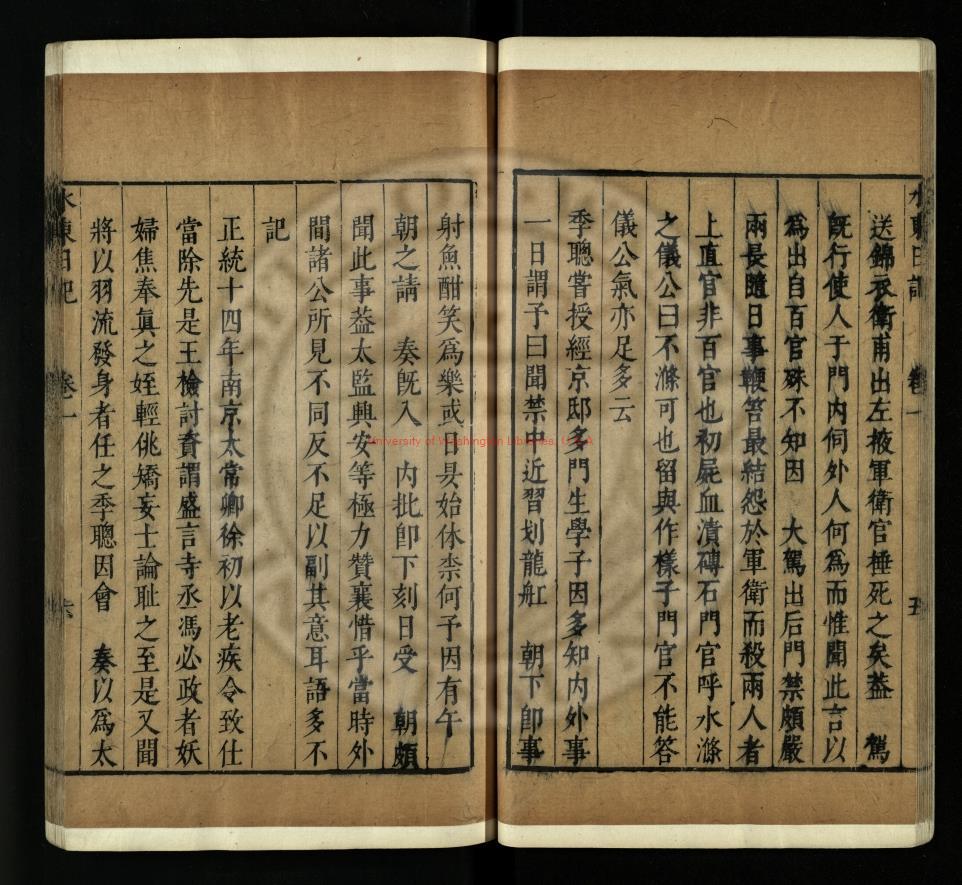 水東日記 卷一 五
送錦衣衛甫出左掖軍衛官棰死之矣葢 駕
旣行使人于門內伺外人何爲而惟聞此言以
爲出自百官殊不知因 大駕出后門禁頗嚴
兩長隨日事鞭笞最結怨於軍衛而殺兩人者
上直官非百官也初屍血漬磚石門官呼水滌
之儀公曰不滌可也留與作樣子門官不能答
儀公氣亦足多云
季聰嘗授經京邸多門生學子因多知內外事
一日謂予曰聞禁中近習划龍舡 朝下卽事
射魚酣笑爲樂或日昃始休柰何予因有午
朝之請 奏旣入 內批卽下刻日受 朝頗
聞此事葢太監興安等極力贊襄惜乎當時外
間諸公所見不同反不足以副其意耳語多不
記
正統十四年南京太常卿徐初以老疾令致仕
當除先是王檢討賚謂盛言寺丞馮必政者妖
婦焦奉眞之姪輕佻矯妄士論耻之至是又聞
將以羽流發身者任之季聰因會 奏以爲太
水東日記 卷一 六
University of Washington Libraries, U.S.A